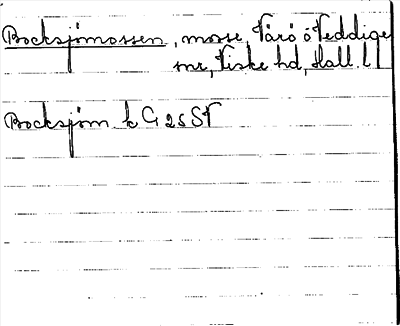 Bocksjömossen, mosse, Värö o Veddige
snr, Viske hd, Hall. l
Bocksjöm k G 25 SV